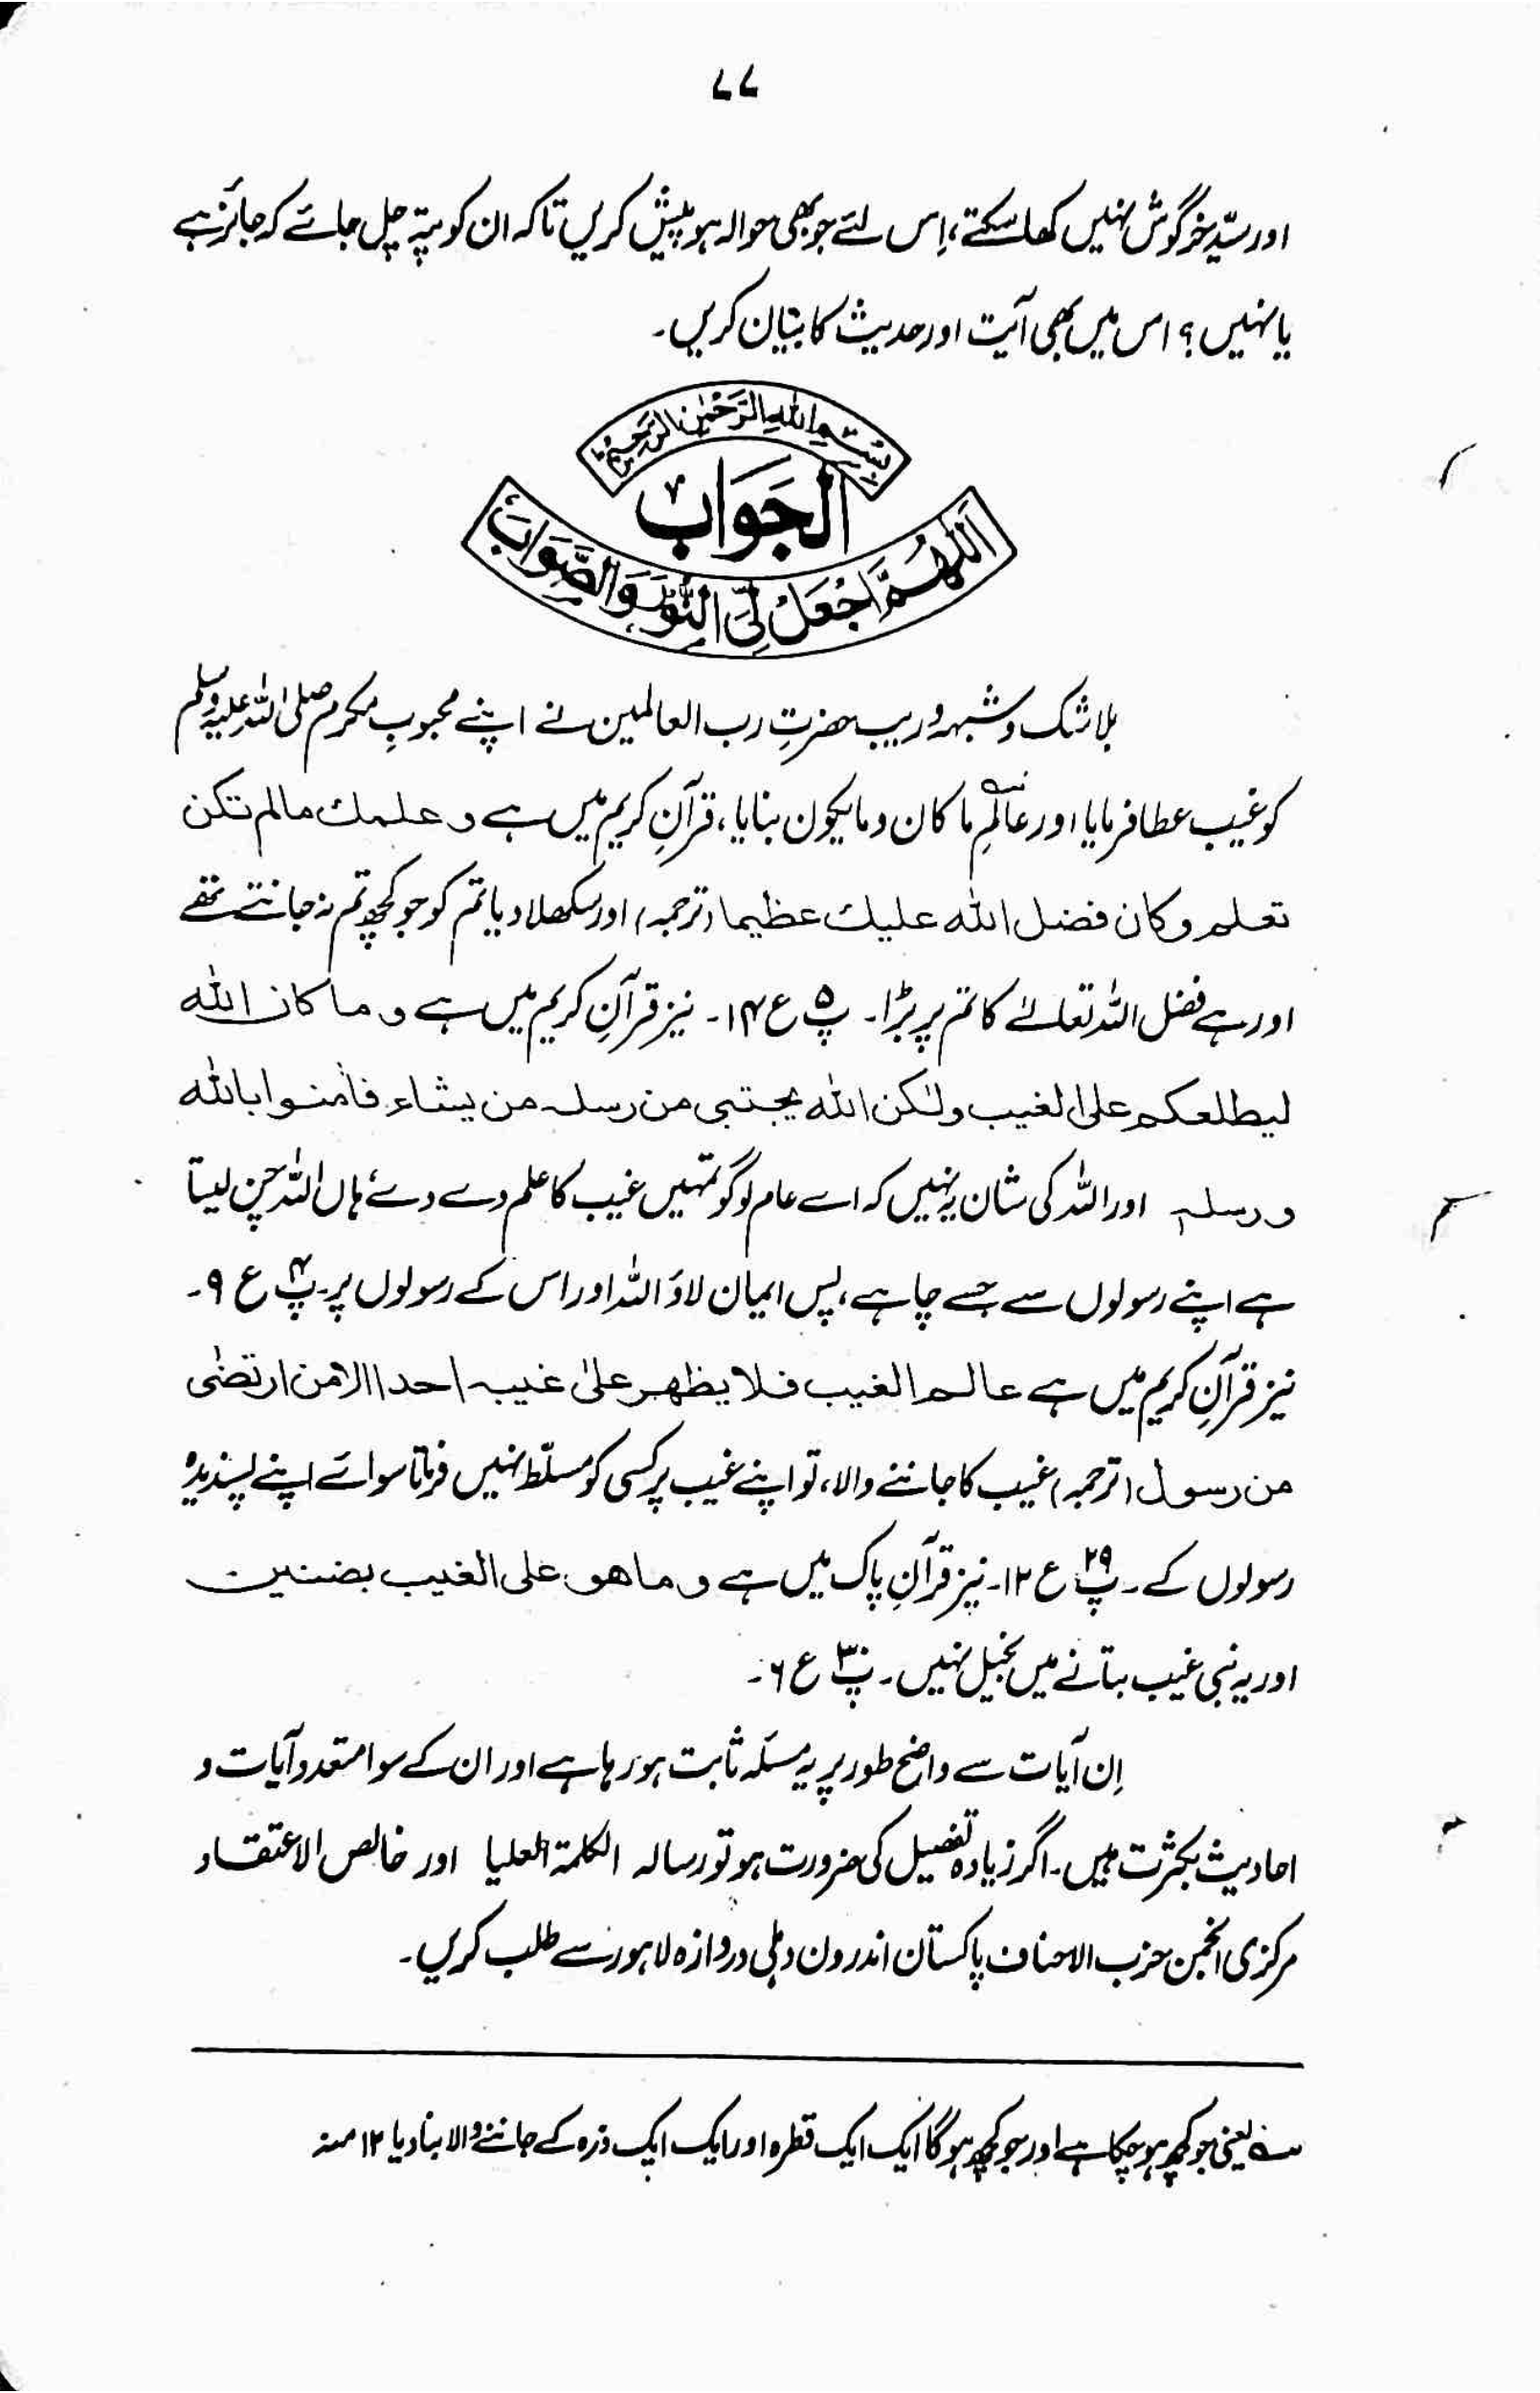 ۷۷
اور سیّد خرگوش نہیں کھا سکتے، اِس لئے جو بھی حوالہ ہو پیش کریں تاکہ ان کو پتہ چل جائے کہ جائز ہے
یا نہیں؟ اس میں بھی آیت اور حدیث کا بیّان کریں۔
بِسْمِ اللهِ الرَّحْمٰنِ الرَّحِيْمِ
الجَوَابُ
اَللّٰهُمَّ اجْعَلْ لِّیَ النُّوْرَ وَالصَّوَابَ
بلا شک و شبہہ و ریب حضرتِ رب العالمین نے اپنے محبوبِ مکرم صلی اللہ علیہ وسلم
کو غیب عطا فرمایا اور عالِمِ ما کان و ما یکون بنایا، قرآنِ کریم میں ہے و علمك مالم تكن
تعلم وكان فضل الله عليك عظيما (ترجمہ) اور سکھلا دیا تم کو جو کچھ تم نہ جانتے تھے
اور ہے فضل اللہ تعالیٰ کا تم پر بڑا۔ پ ۵ ع ۱۴۔ نیز قرآنِ کریم میں ہے و ما كان الله
ليطلعكم على الغيب ولٰكن الله يجتبى من رسله من يشاء فاٰمنوا بالله
و رسله اور اللہ کی شان یہ نہیں کہ اے عام لوگو تمہیں غیب کا علم دے دے ہاں اللہ چن لیتا
ہے اپنے رسولوں سے جسے چاہے، پس ایمان لاؤ اللہ اور اس کے رسولوں پر۔ پ ۴ ع ۹۔
نیز قرآنِ کریم میں ہے عالم الغيب فلا يظهر علىٰ غيبه احدا الا من ارتضٰى
من رسول (ترجمہ) غیب کا جاننے والا، تو اپنے غیب پر کسی کو مسلّط نہیں فرماتا سوائے اپنے پسندیدہ
رسولوں کے۔ پ ۲۹ ع ۱۲۔ نیز قرآنِ پاک میں ہے و ما هو على الغيب بضنين
اور یہ نبی غیب بتانے میں بخیل نہیں۔ پ ۳۰ ع ۶۔
اِن آیات سے واضح طور پر یہ مسئلہ ثابت ہو رہا ہے اور ان کے سوا متعدد آیات و
احادیث بکثرت ہیں۔ اگر زیادہ تفصیل کی ضرورت ہو تو رسالہ الکلمۃ العلیا اور خالص الاعتقاد
مرکزی انجمن حزب الاحناف پاکستان اندرون دہلی دروازہ لاہور سے طلب کریں۔
یعنی جو کچھ ہو چکا ہے اور جو کچھ ہو گا ایک ایک قطرہ اور ایک ایک ذرہ کے جاننے والا بنا دیا ۱۲ منہ